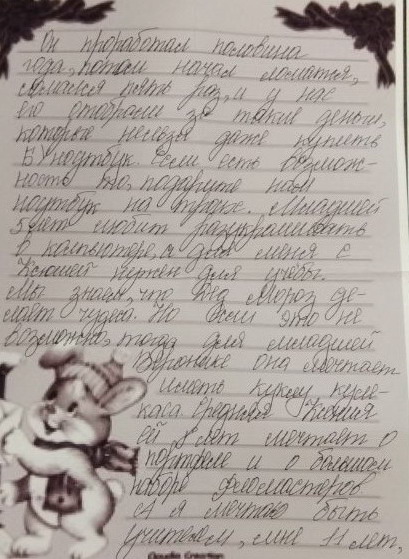 Он проработал половина
года, потом начал ломатся,
сломался пять раз, и у нас
его отобрали за такие деньги,
которые нельзя даже купить
БУ ноутбук. Если есть возмож-
ность то, подарите нам
ноутбук на троих. Младшей
5 лет любит разукрашивать
в компьютере, а для меня с
Ксюшей нужен для учебы.
Мы знаем, что Дед Мороз де-
лает чудеса. Но если это не
возможно, тогда для младшей
Веронике она мечтает
иметь куклу
Средняя Ксения
ей 8 лет мечтает о
портфеле и о большом
наборе фломастеров
А я мечтаю быть
учителем, мне 11 лет,